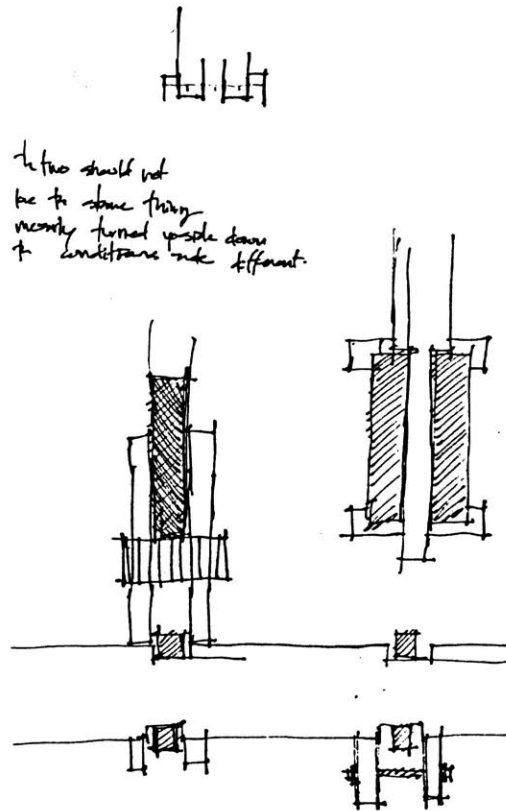 two should not
be the same thing
merely turned upside down
conditions are different.